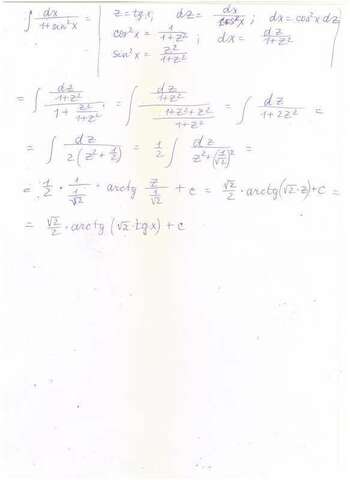 ∫ dx/(1+sin²x) = | z = tg x; dz = dx/cos²x; dx = cos²x dz
cos²x = 1/(1+z²); dx = dz/(1+z²)
sin²x = z²/(1+z²) |
= ∫ (dz/(1+z²))/(1 + z²/(1+z²)) = ∫ (dz/(1+z²))/((1+z²+z²)/(1+z²)) = ∫ dz/(1+2z²) =
= ∫ dz/(2(z²+1/2)) = 1/2 ∫ dz/(z²+(1/√2)²) =
= 1/2 · 1/(1/√2) · arctg z/(1/√2) + c = √2/2 · arctg(√2·z)+c =
= √2/2 · arctg (√2·tgx) + c